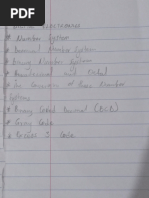 # Number System
# Decimal Number System
# Binary Number System
# Hexadecimal and Octal
# The Conversion of these Number
Systems
# Binary Coded Decimal (BCD)
# Gray Code
# Excess 3 Code